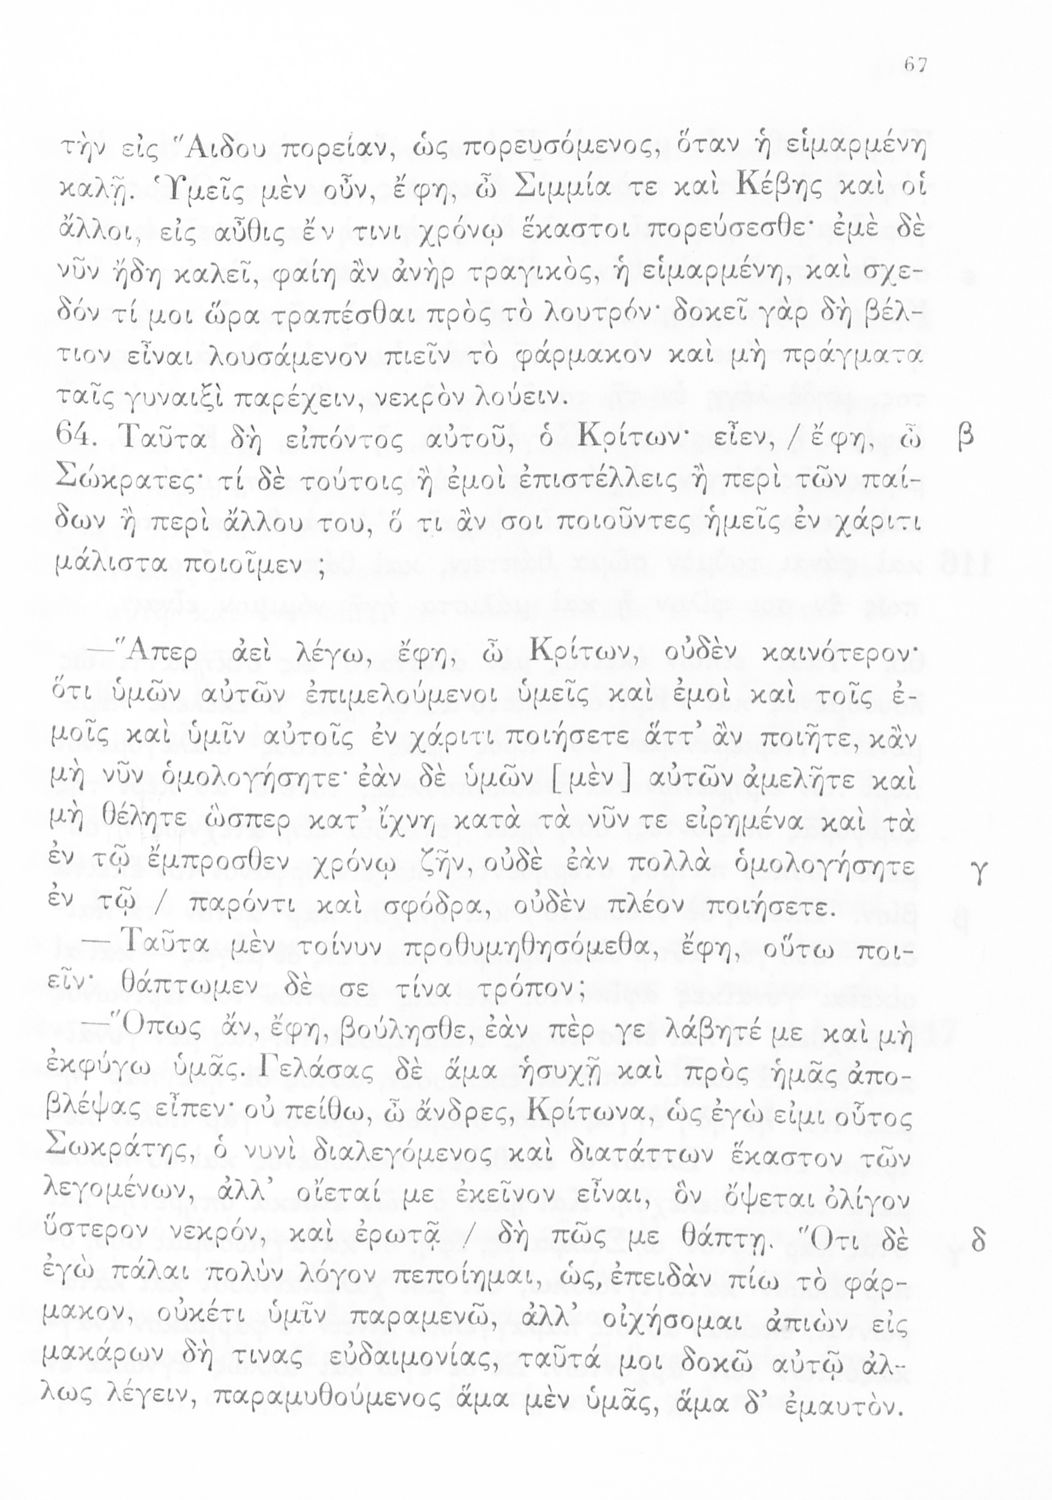 67
τὴν εἰς Ἅιδου πορείαν, ὡς πορευσόμενος, ὅταν ἡ εἱμαρμένη
καλῇ. Ὑμεῖς μὲν οὖν, ἔφη, ὦ Σιμμία τε καὶ Κέβης καὶ οἱ
ἄλλοι, εἰς αὖθις ἔν τινι χρόνῳ ἕκαστοι πορεύσεσθε· ἐμὲ δὲ
νῦν ἤδη καλεῖ, φαίη ἂν ἀνὴρ τραγικὸς, ἡ εἱμαρμένη, καὶ σχε-
δόν τί μοι ὥρα τραπέσθαι πρὸς τὸ λουτρόν· δοκεῖ γὰρ δὴ βέλ-
τιον εἶναι λουσάμενον πιεῖν τὸ φάρμακον καὶ μὴ πράγματα
ταῖς γυναιξὶ παρέχειν, νεκρὸν λούειν.
64. Ταῦτα δὴ εἰπόντος αὐτοῦ, ὁ Κρίτων· εἶεν, / ἔφη, ὦ β
Σώκρατες· τί δὲ τούτοις ἢ ἐμοὶ ἐπιστέλλεις ἢ περὶ τῶν παί-
δων ἢ περὶ ἄλλου του, ὅ τι ἄν σοι ποιοῦντες ἡμεῖς ἐν χάριτι
μάλιστα ποιοῖμεν ;
—Ἅπερ ἀεὶ λέγω, ἔφη, ὦ Κρίτων, οὐδὲν καινότερον·
ὅτι ὑμῶν αὐτῶν ἐπιμελούμενοι ὑμεῖς καὶ ἐμοὶ καὶ τοῖς ἐ-
μοῖς καὶ ὑμῖν αὐτοῖς ἐν χάριτι ποιήσετε ἅττ’ ἂν ποιῆτε, κἂν
μὴ νῦν ὁμολογήσητε· ἐὰν δὲ ὑμῶν [μὲν] αὐτῶν ἀμελῆτε καὶ
μὴ θέλητε ὥσπερ κατ’ ἴχνη κατὰ τὰ νῦν τε εἰρημένα καὶ τὰ
ἐν τῷ ἔμπροσθεν χρόνῳ ζῆν, οὐδὲ ἐὰν πολλὰ ὁμολογήσητε γ
ἐν τῷ / παρόντι καὶ σφόδρα, οὐδὲν πλέον ποιήσετε.
— Ταῦτα μὲν τοίνυν προθυμηθησόμεθα, ἔφη, οὕτω ποι-
εῖν· θάπτωμεν δὲ σε τίνα τρόπον;
—Ὅπως ἄν, ἔφη, βούλησθε, ἐὰν πὲρ γε λάβητέ με καὶ μὴ
ἐκφύγω ὑμᾶς. Γελάσας δὲ ἅμα ἡσυχῇ καὶ πρὸς ἡμᾶς ἀπο-
βλέψας εἶπεν· οὐ πείθω, ὦ ἄνδρες, Κρίτωνα, ὡς ἐγὼ εἰμι οὗτος
Σωκράτης, ὁ νυνὶ διαλεγόμενος καὶ διατάττων ἕκαστον τῶν
λεγομένων, ἀλλ’ οἴεταί με ἐκεῖνον εἶναι, ὃν ὄψεται ὀλίγον
ὕστερον νεκρόν, καὶ ἐρωτᾷ / δὴ πῶς με θάπτῃ. Ὅτι δὲ δ
ἐγὼ πάλαι πολὺν λόγον πεποίημαι, ὡς, ἐπειδὰν πίω τὸ φάρ-
μακον, οὐκέτι ὑμῖν παραμενῶ, ἀλλ’ οἰχήσομαι ἀπιὼν εἰς
μακάρων δὴ τινας εὐδαιμονίας, ταῦτά μοι δοκῶ αὐτῷ ἀλ-
λως λέγειν, παραμυθούμενος ἅμα μὲν ὑμᾶς, ἅμα δ’ ἐμαυτὸν.